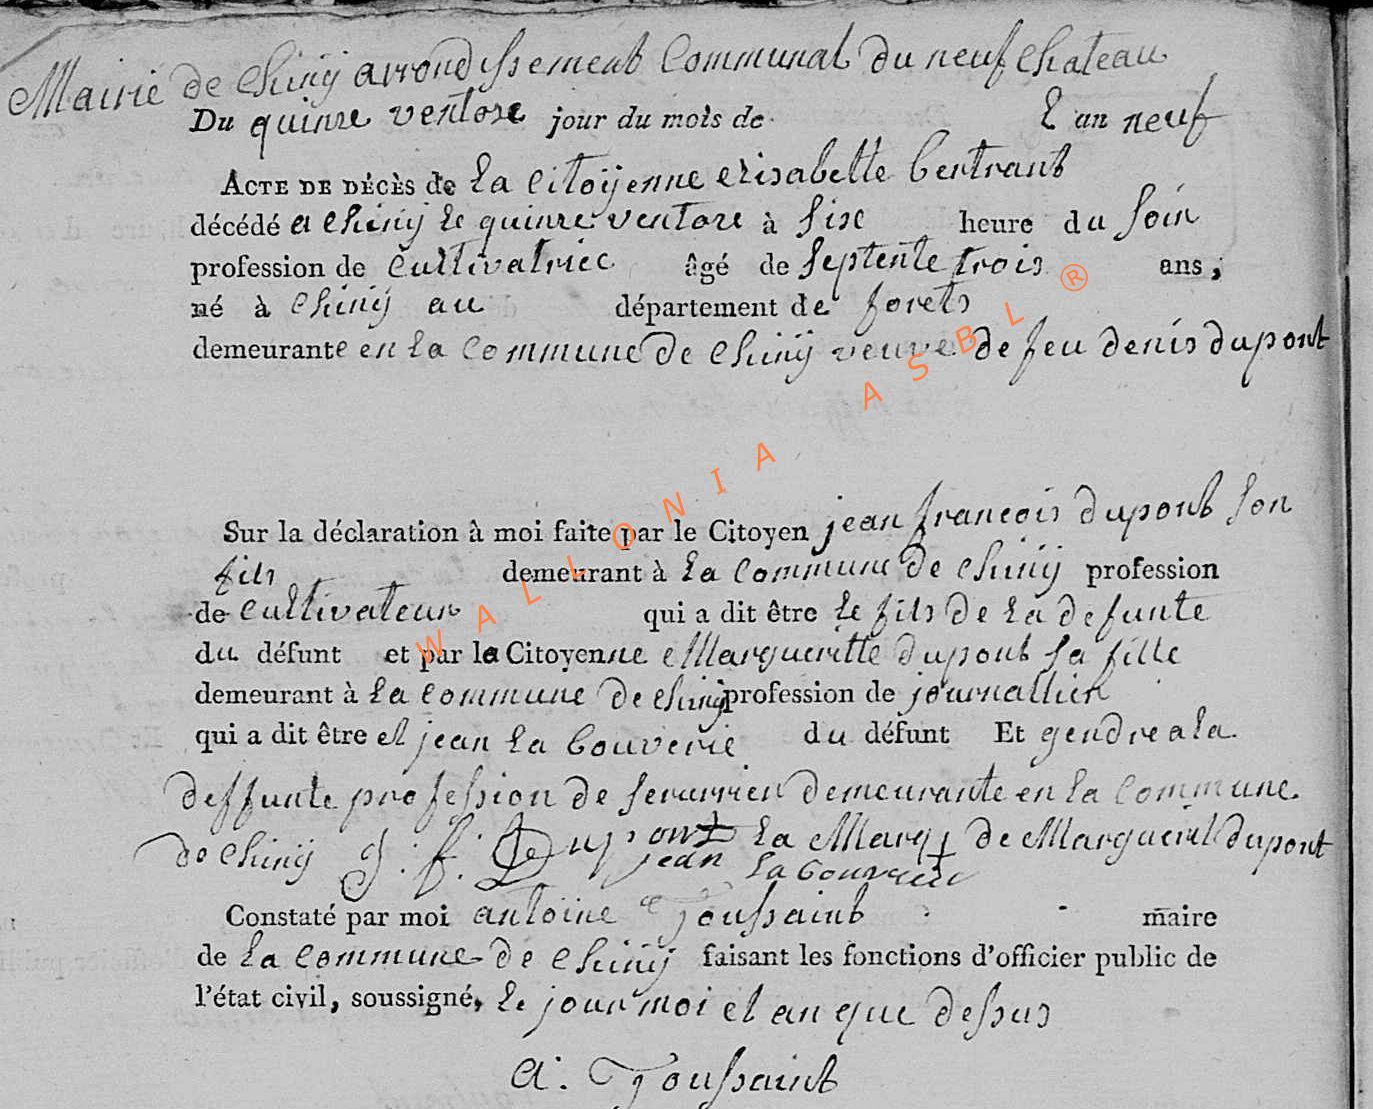 Mairie de Chiny arrondissement Communal du neufchateau
Du quinze ventose jour du mois de l'an neuf
ACTE DE DÉCÈS de La Citoyenne elisabette bertrant
décédé a Chiny le quinze ventose à six heure du soir
profession de Cultivatriec âgé de septente trois ans,
né à Chiny au département de forets
demeurante en la Commune de Chiny veuve de feu denis dupont
Sur la déclaration à moi faite par le Citoyen jean francois dupont son
fils demeurant à la Commune de Chiny profession
de Cultivateur qui a dit être le fils de la defunte
du défunt et par la Citoyenne Margueritte dupont sa fille
demeurant à la Commune de Chiny profession de journallier
qui a dit être et jean la bouverie du défunt Et gendre a la
deffunte profession de serurrier demeurante en la Commune
de Chiny J. f. Dupont la Marq † de Marguerit dupont
jean la bouverie
Constaté par moi antoine Toussaint maire
de la Commune de Chiny faisant les fonctions d'officier public de
l'état civil, soussigné, le jour moi et an que dessus
a. Toussaint
WALLONIA ASBL ®